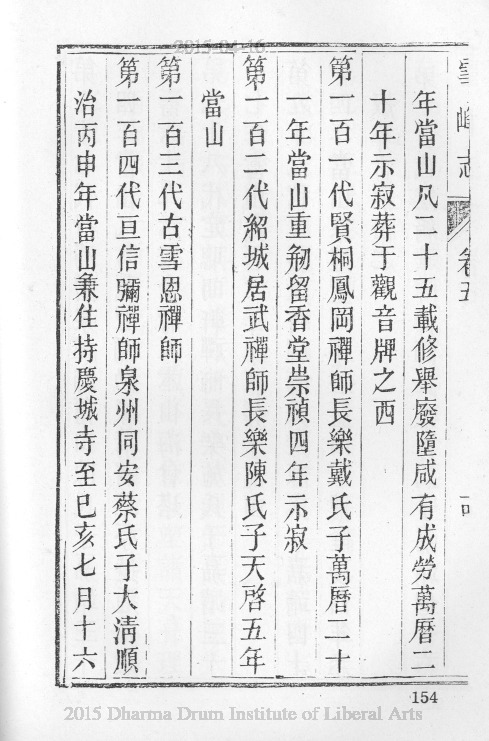 2015-04-16
雪峰志 卷五
年當山凡二十五載修舉廢墮咸有成勞萬曆二
十年示寂葬于觀音牌之西
第一百一代賢桐鳳岡禪師長樂戴氏子萬曆二十
一年當山重剏留香堂崇禎四年示寂
第一百二代紹城居武禪師長樂陳氏子天啓五年
當山
第一百三代古雪恩禪師
第一百四代亘信彌禪師泉州同安蔡氏子大清順
治丙申年當山兼住持慶城寺至已亥七月十六
154
2015 Dharma Drum Institute of Liberal Arts